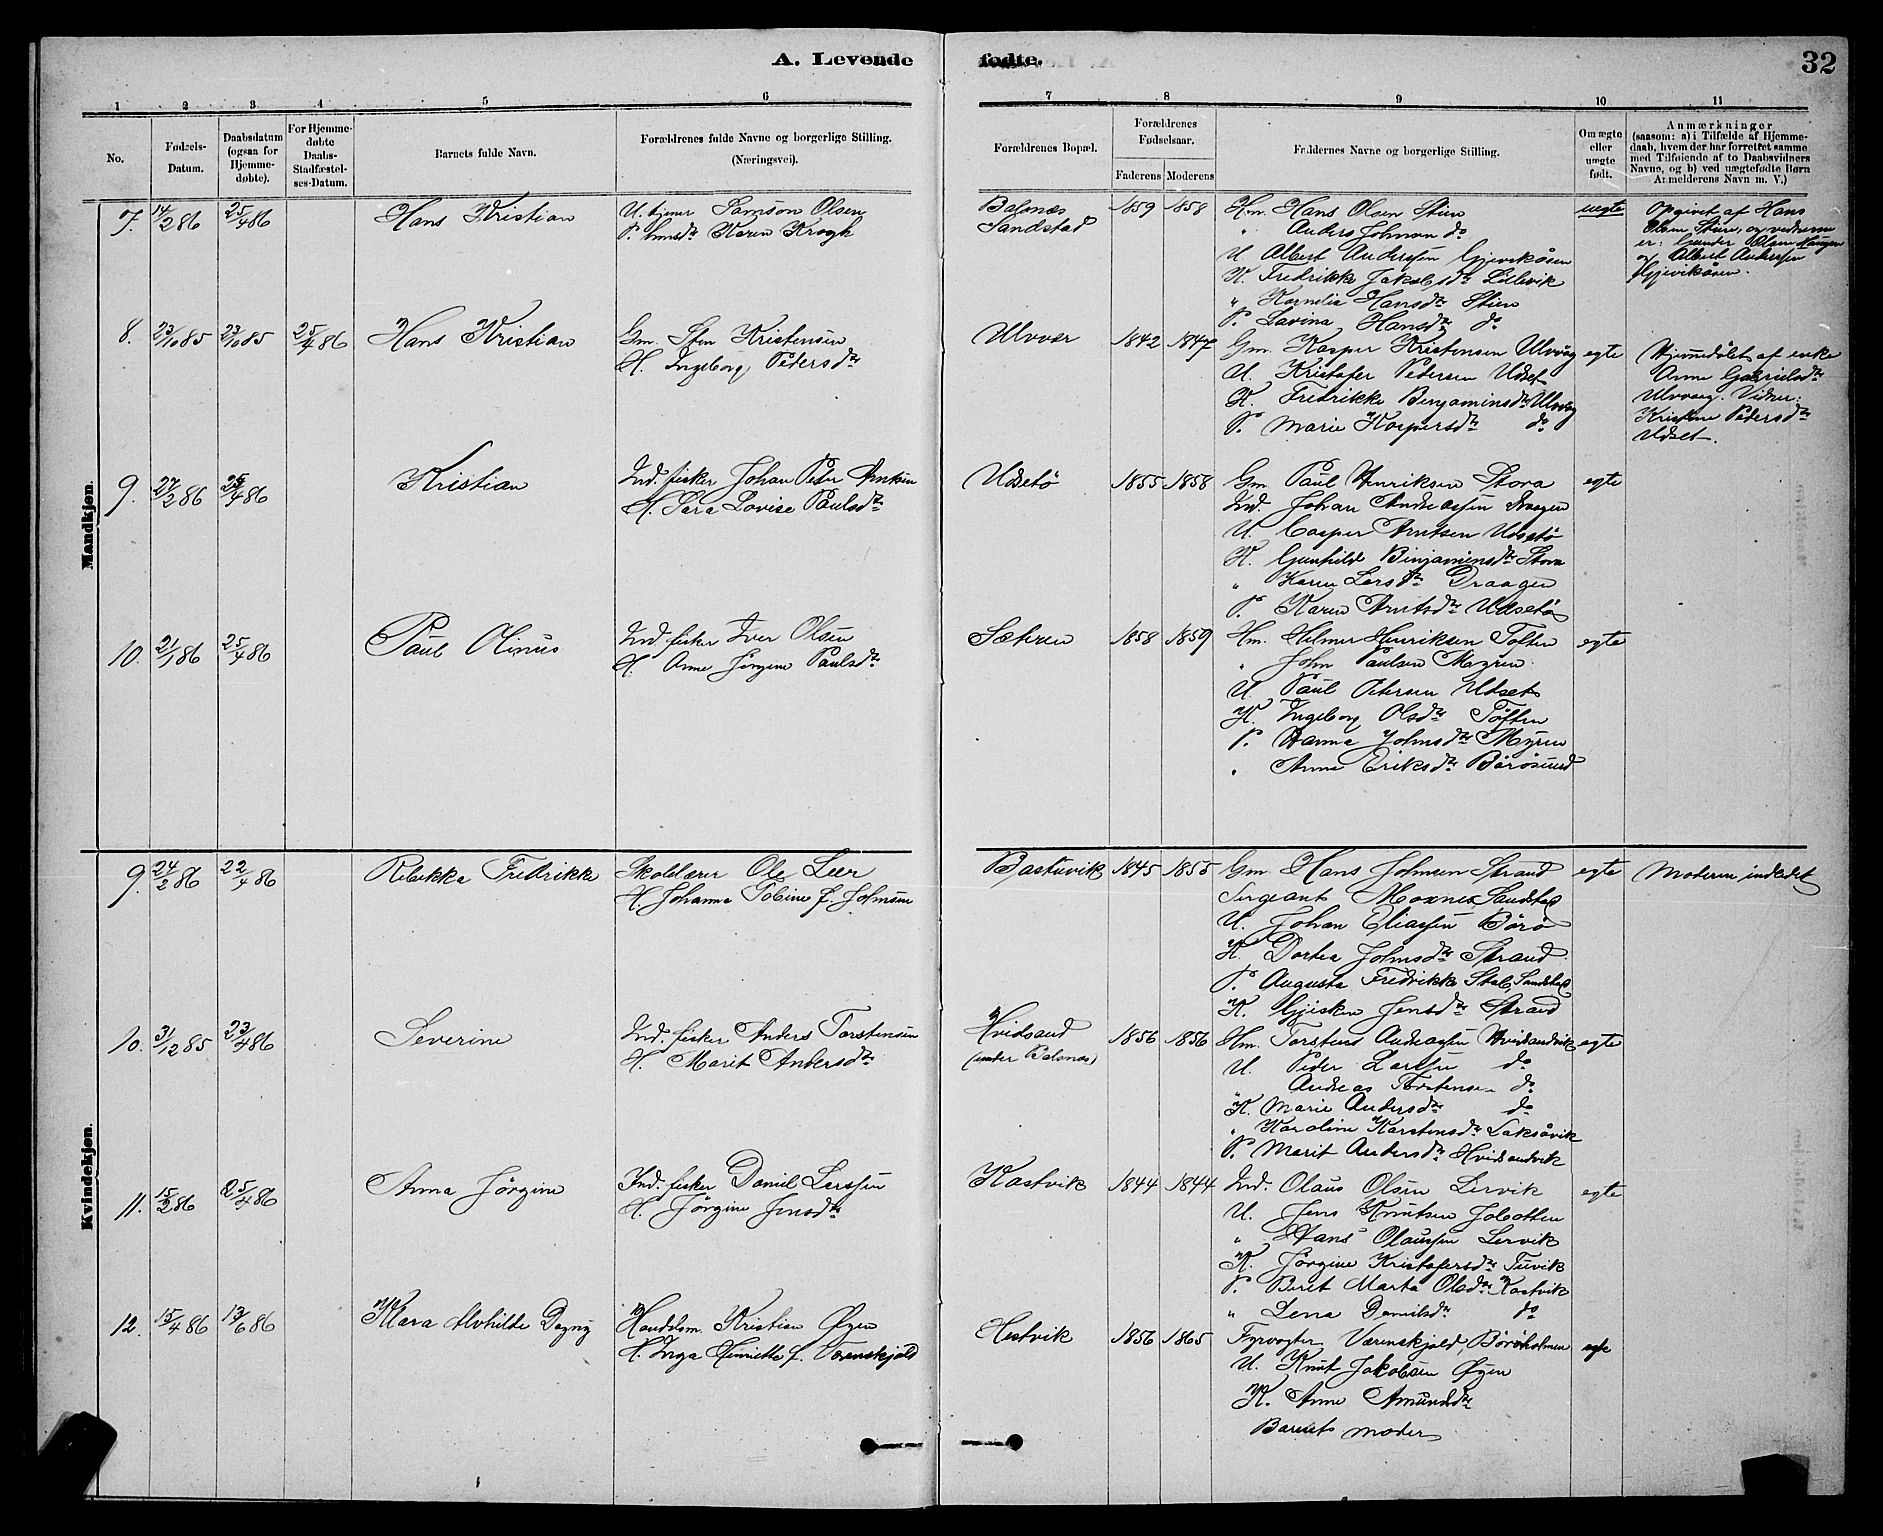 A. Levende fødte. 32
1 2 3 4 5 6 7 8 9 10 11
No.
Fødsels-Datum.
Daabsdatum (ogsaa for Hjemme-døbte).
For Hjemme-døbte Daabs-Stadfæstel-ses-Datum.
Barnets fulde Navn.
Forældrenes fulde Navne og borgerlige Stilling. (Næringsvei).
Forældrenes Bopæl.
Forældrenes Fødselsaar.
Faderens Moderens
Faddernes Navne og borgerlige Stilling.
Om ægte eller uægte født.
Anmærkninger
(saasom: a) i Tilfælde af Hjemme-
daab, hvem der har forrettet samme
med Tilføiende af to Daabsvidners
Navne, og b) ved uægtefødte Børn
Anmelderens Navn m. V.)
Mandkjøn.
7. 14/2 86 25/4 86 Hans Kristian
U. tjener Samson Olsen
P. Karen Krogh
Balsnes
Sandstad
1859 1858
Hm. Hans Olsen Stien
" Anders Johnsen do
U. Albert Anderssen Gjevikåsen
K. Fredrikke Jakobsdtr Lillevik
" Kornelia Hansdtr Stien
P. Lavina Hansdtr do
uegte
Opgivet af Hans
Olsen Stien, og vidnerne
er: Gunder Olsen Haugen
og Albert Anderssen
Gjevikåsen.
8. 23/10 85 23/10 85 25/4 86 Hans Kristian
Gm. Sten Kristensen
H. Ingeborg Petersdtr
Ulvær
1842 1847
Gm. Kasper Kristensen Ulvåg
U. Kristofer Pedersen Udset
K. Fredrikke Benjaminsdtr Ulvåg
P. Marie Kaspersdtr do
egte
Hjemmedøbt af enke
Anne Gabrielsdtr
Ulvåg. Vidner:
Kristine Pedersdtr
Udset.
9. 27/2 86 25/4 86 Kristian
Ind. fisker Johan Peter Arntsen
H. Sara Lovise Paulsdtr
Udsetø
1855 1858
Gm. Paul Henriksen Stora
Ind. Johan Andreassen Draagen
U. Casper Arntsen Udsetø
K. Gunhild Binjaminsdtr Stora
" Karen Larsdtr Draagen
P. Karen Arntsdtr Udsetø
egte
10. 2/1 86 25/4 86 Paul Olinus
Ind. fisker Iver Olsen
H. Anne Jörgine Paulsdtr
Sætren
1858 1859
Hm. Hilmer Henriksen Toften
" John Paulsen Myren
U. Paul Petersen Udset
K. Ingeborg Olsdtr Toften
P. Hanna Johnsdtr Myren
" Anne Eriksdtr Börösund
egte
Kvindekjøn.
9. 24/2 86 22/4 86 Rebekka Fredrikke
Skolelærer Ole Leer
H. Johanna Tobine f. Johnsen
Bastuvik
1845 1855
Gm. Hans Johnsen Strand
Sergeant Moxnes Sandstad
U. Johan Eliassen Börö
K. Dortea Johnsdtr Strand
P. Augusta Fredrikke Stab, Sandstad
K. Gjisken Jensdtr Strand
egte
Moderen indledet
10. 31/12 85 23/4 86 Severine
Ind. fisker Anders Torstensen
H. Marit Andersdtr
Hvidsand
(under Balsnes)
1856 1856
Hm. Torstens Andreassen Hvidsandvik
U. Peder Larsen do
" Andreas Torstensen do
K. Marie Andersdtr do
" Karoline Karstensdtr Laksåvik
P. Marit Andersdtr Hvidsandvik
egte
11. 15/2 86 25/4 86 Anna Jörgine
Ind. fisker Daniel Larssen
H. Jörgine Jensdtr
Kastvik
1844 1844
Ind. Olaus Olsen Lervik
U. Jens Knutsen
" Hans Olaussen Lervik
K. Jörgine Kristofersdtr Tuvik
P. Beret Marta Olsdtr Kastvik
" Lena Danielsdtr do
egte
12. 15/4 86 13/6 86 Klara Alvhilde Dagny
Handelsm. Kristian Øyen
H. Inga Henriette f. Værenskjold
Hestvik
1856 1865
Fyrvogter Værenskjold, Böröholmen
U. Knut Jakobsen Øyen
K. Anne Amundsdtr
Barnets moder
egte